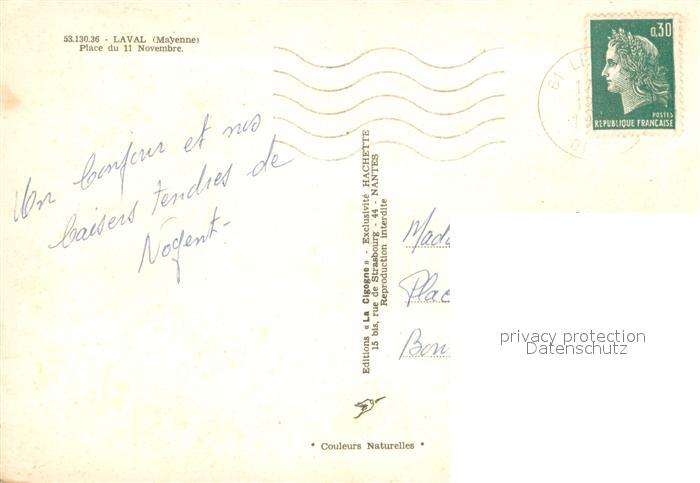 53.130.36 - LAVAL (Mayenne)
Place du 11 Novembre.
0,30
POSTES
REPUBLIQUE FRANÇAISE
61 LE
Un bonjour et nos
baisers tendres de
Nogent-
Editions « La Cigogne » - Exclusivité HACHETTE
15 bis, rue de Strasbourg - 44 - NANTES
Reproduction interdite
Mad
Plac
Bon
privacy protection
Datenschutz
* Couleurs Naturelles *